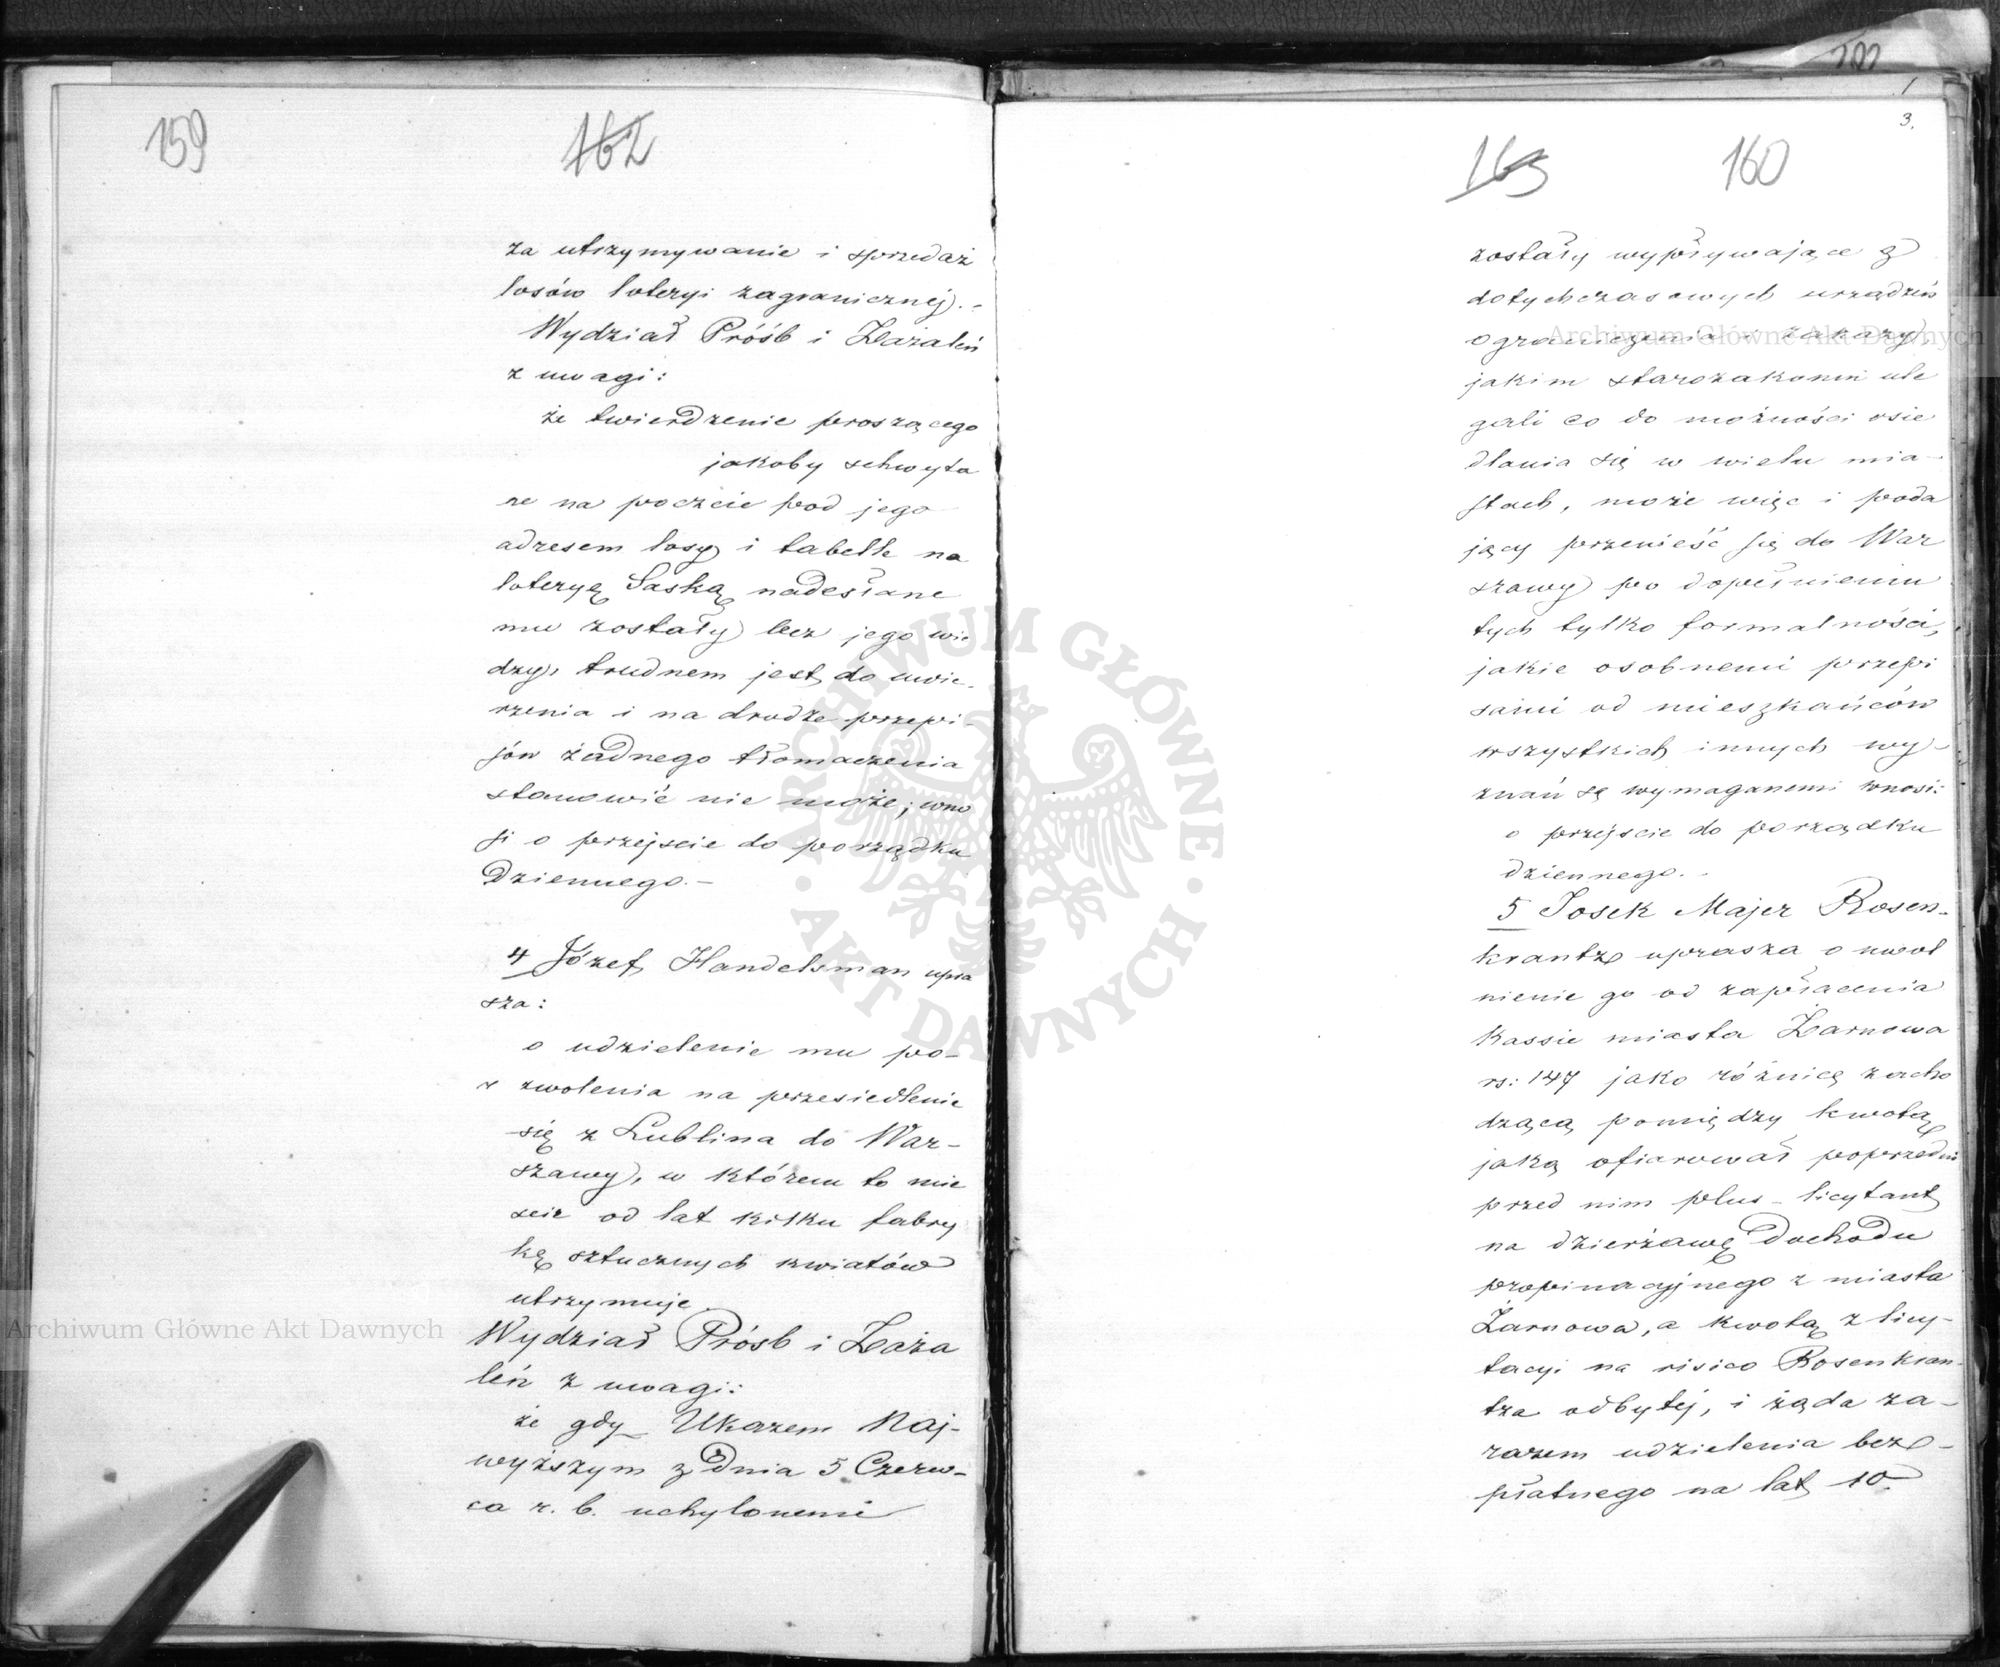 159
162
za utrzymywanie i sprzedaż
losów loteryi zagranicznéj.-
Wydział Próśb i Zażaleń
z uwagi:
że twierdzenie proszącego
jakoby schwyta
ne na poczcie pod jego
adresem losy i tabelle na
loteryę Saską nadesłane
mu zostały bez jego wie
dzy, trudnem jest do uwie-
rzenia i na drodze przepi-
sów żadnego tłomaczenia
stanowić nie może; wno
si o przejście do porządku
Dziennego.-
4 Józef Handelsman upra
sza:
o udzielenie mu po-
zwolenia na przesiedlenie
się z Lublina do War-
szawy, w którem to mie
ście od lat kilku fabry
kę sztucznych kwiatów
utrzymuje.
Wydział Próśb i Zaża
leń z uwagi:
że gdy Ukazem Naj-
wyższym z Dnia 5 Czerw-
ca r. b. uchylonemi
3.
163
160
zostały wypływające z
dotychczasowych urządzeń
ograniczenia i zakazy,
jakim starozakonni ule
gali co do możności osie
dlania się w wielu mia-
stach, może więc i poda
jący przenieść się do War
szawy po dopełnieniu
tych tylko formalności,
jakie osobnemi przepi
sami od mieszkańców
wszystkich innych wy-
znań są wymaganemi wnosi:
o przejście do porządku
dziennego.-
5 Josek Majer Rosen-
krantz uprasza o uwol
nienie go od zapłacenia
Kassie miasta Żarnowa
rs: 147 jako różnicę zacho
dzącą pomiędzy kwotą
jaką ofiarował poprzedni
przed nim plus-licytant
na dzierżawę Dochodu
propinacyjnego z miasta
Żarnowa, a kwotą z licy-
tacyi na risico Rosenkran-
tza odbytéj, i żąda za-
razem udzielenia bez-
płatnego na lat 10.
Archiwum Główne Akt Dawnych
Archiwum Główne Akt Dawnych
ARCHIWUM GŁÓWNE AKT DAWNYCH